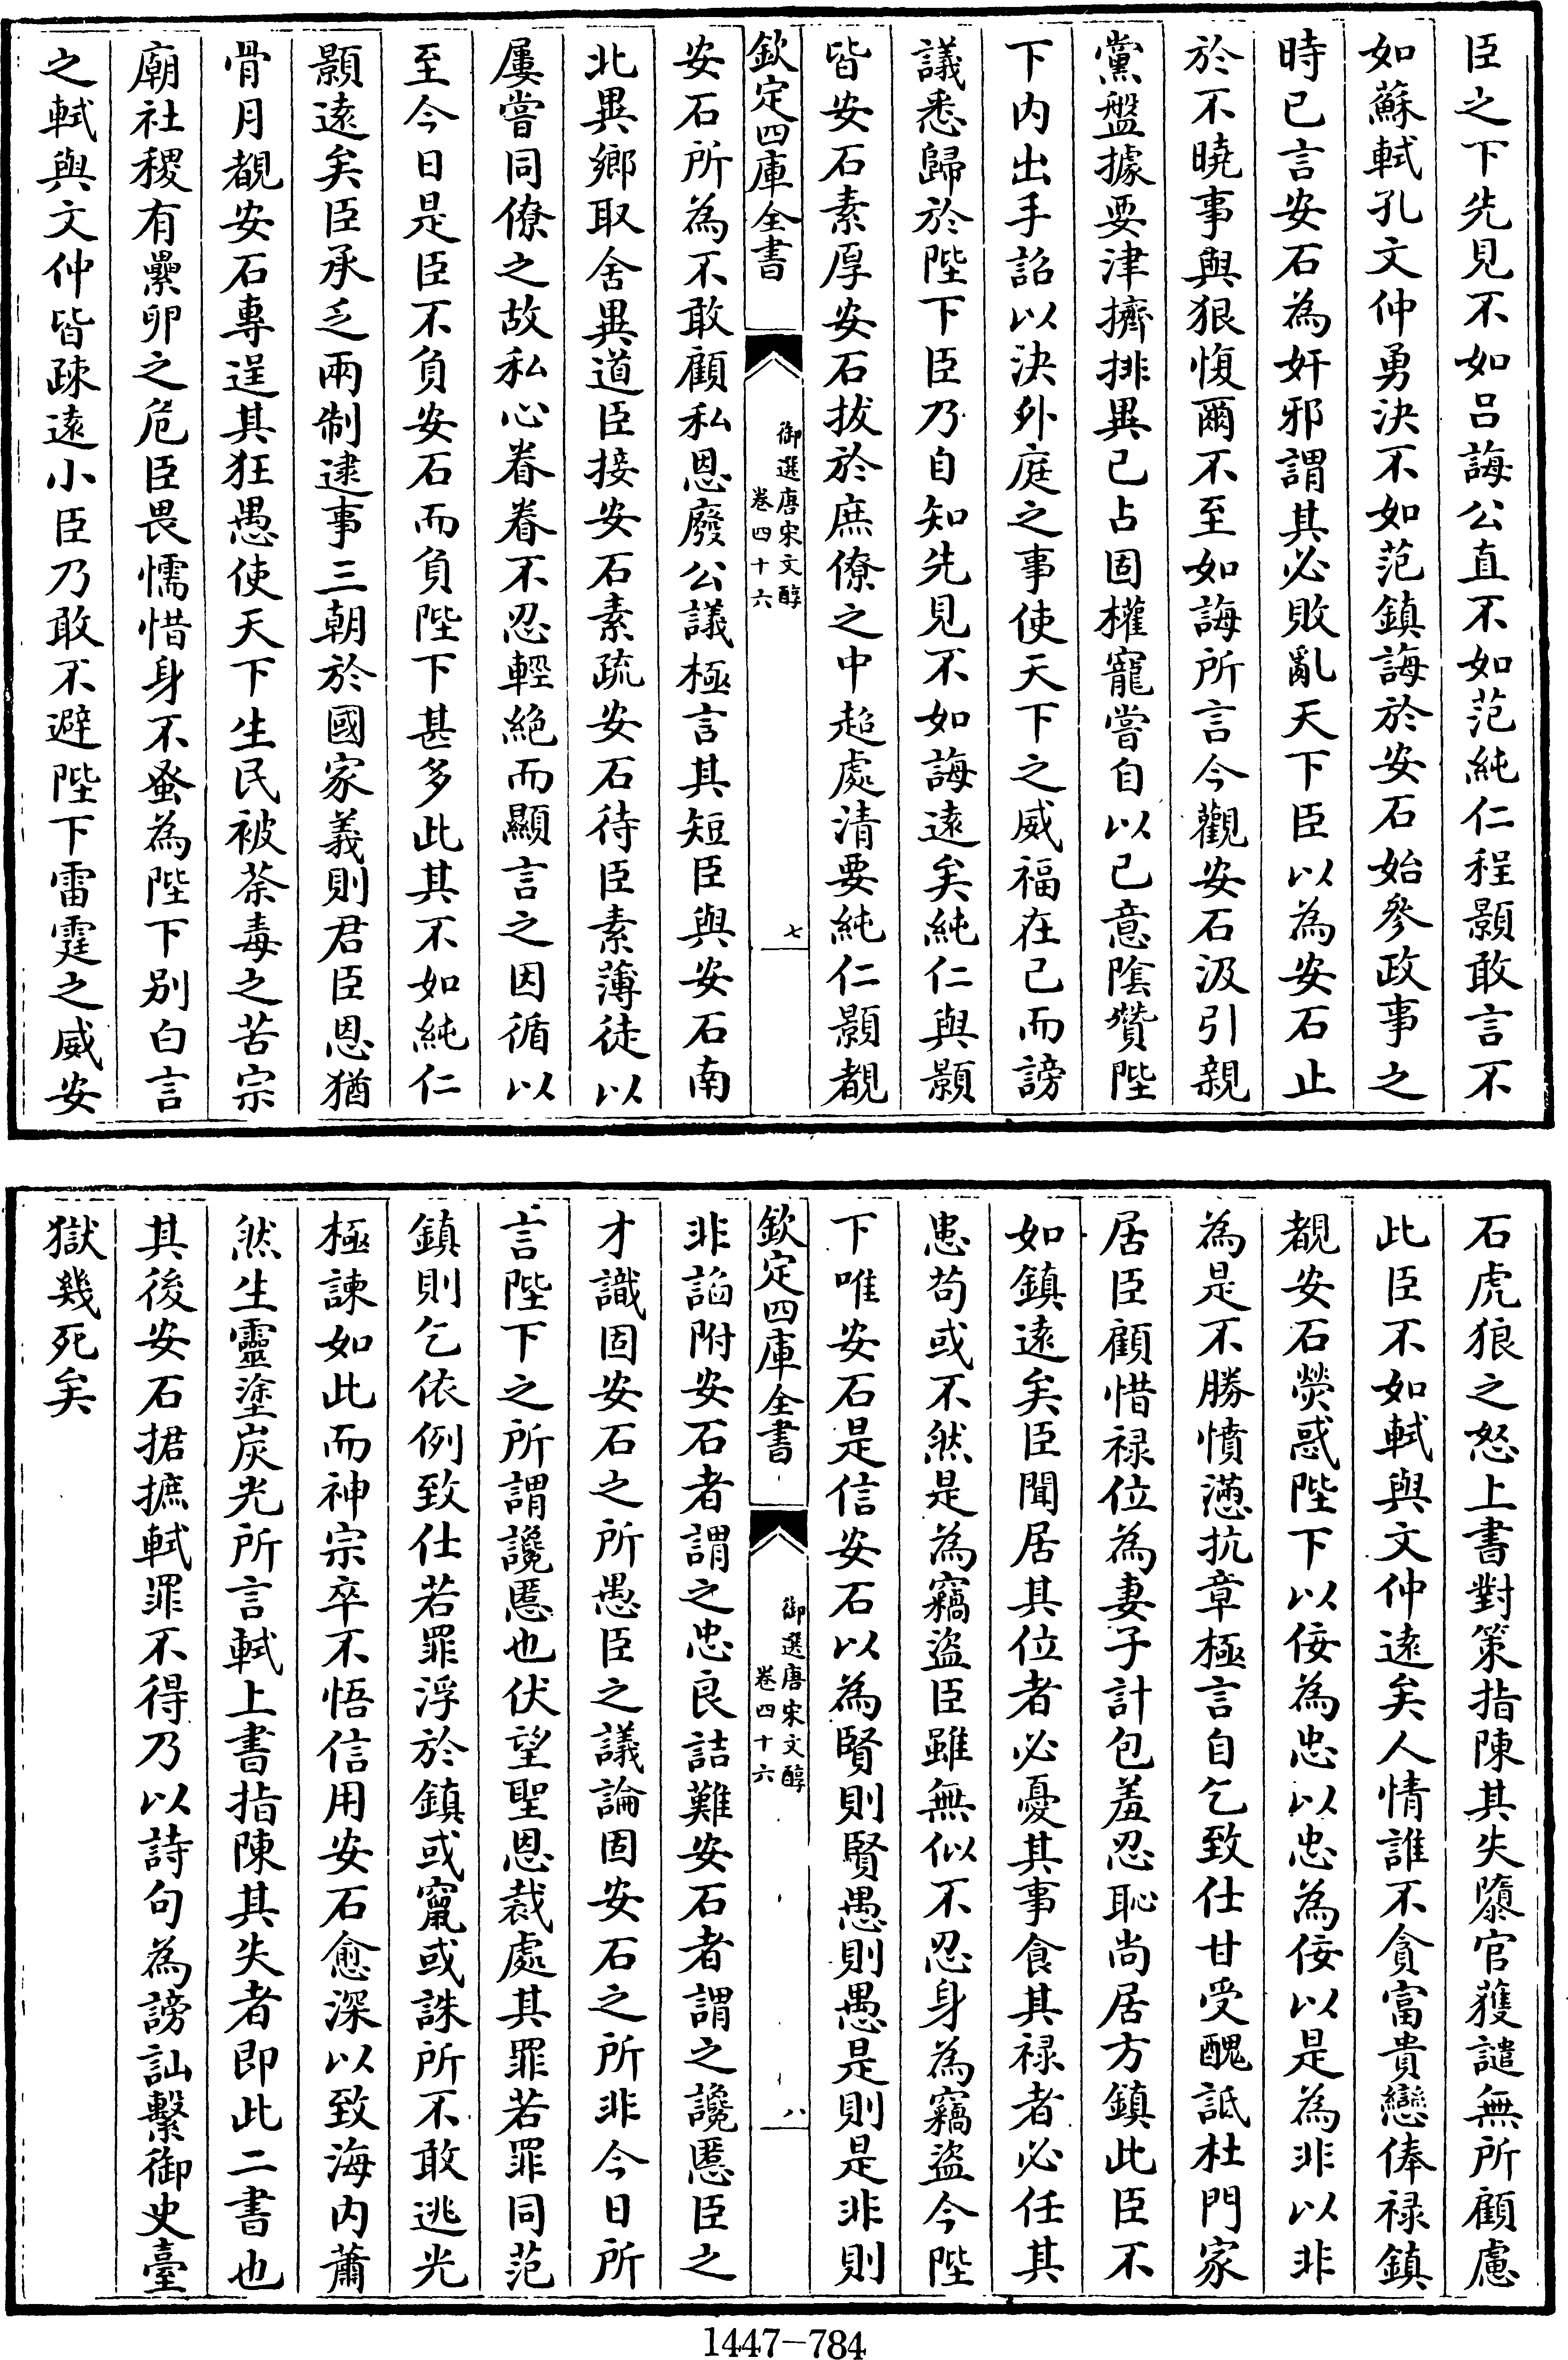 臣之下先見不如呂誨公直不如范純仁程顥敢言不
如蘇軾孔文仲勇決不如范鎮誨於安石始參政事之
時已言安石為奸邪謂其必敗亂天下臣以為安石止
於不曉事與狠愎爾不至如誨所言今觀安石汲引親
黨盤據要津擠排異己占固權寵嘗自以己意陰贊陛
下内出手詔以決外庭之事使天下之威福在己而謗
議悉歸於陛下臣乃自知先見不如誨遠矣純仁與顥
皆安石素厚安石拔於庶僚之中超處清要純仁顥覩
欽定四庫全書
御選唐宋文醇
卷四十六
七
安石所為不敢顧私恩廢公議極言其短臣與安石南
北異鄉取舍異道臣接安石素疏安石待臣素薄徒以
屢嘗同僚之故私心眷眷不忍輕絶而顯言之因循以
至今日是臣不負安石而負陛下甚多此其不如純仁
顥遠矣臣承乏兩制逮事三朝於國家義則君臣恩猶
骨月覩安石專逞其狂愚使天下生民被荼毒之苦宗
廟社稷有纍卵之危臣畏懦惜身不蚤為陛下别白言
之軾與文仲皆疎遠小臣乃敢不避陛下雷霆之威安
石虎狼之怒上書對策指陳其失隳官獲譴無所顧慮
此臣不如軾與文仲遠矣人情誰不貪富貴戀俸禄鎮
覩安石熒惑陛下以佞為忠以忠為佞以是為非以非
為是不勝憤懣抗章極言自乞致仕甘受醜詆杜門家
居臣顧惜禄位為妻子計包羞忍恥尚居方鎮此臣不
如鎮遠矣臣聞居其位者必憂其事食其禄者必任其
患苟或不然是為竊盗臣雖無似不忍身為竊盗今陛
下唯安石是信安石以為賢則賢愚則愚是則是非則
欽定四庫全書
御選唐宋文醇
卷四十六
八
非諂附安石者謂之忠良詰難安石者謂之讒慝臣之
才識固安石之所愚臣之議論固安石之所非今日所
言陛下之所謂讒慝也伏望聖恩裁處其罪若罪同范
鎮則乞依例致仕若罪浮於鎮或竄或誅所不敢逃光
極諫如此而神宗卒不悟信用安石愈深以致海内蕭
然生靈塗炭光所言軾上書指陳其失者即此二書也
其後安石捃摭軾罪不得乃以詩句為謗訕繫御史臺
獄幾死矣
1447-784